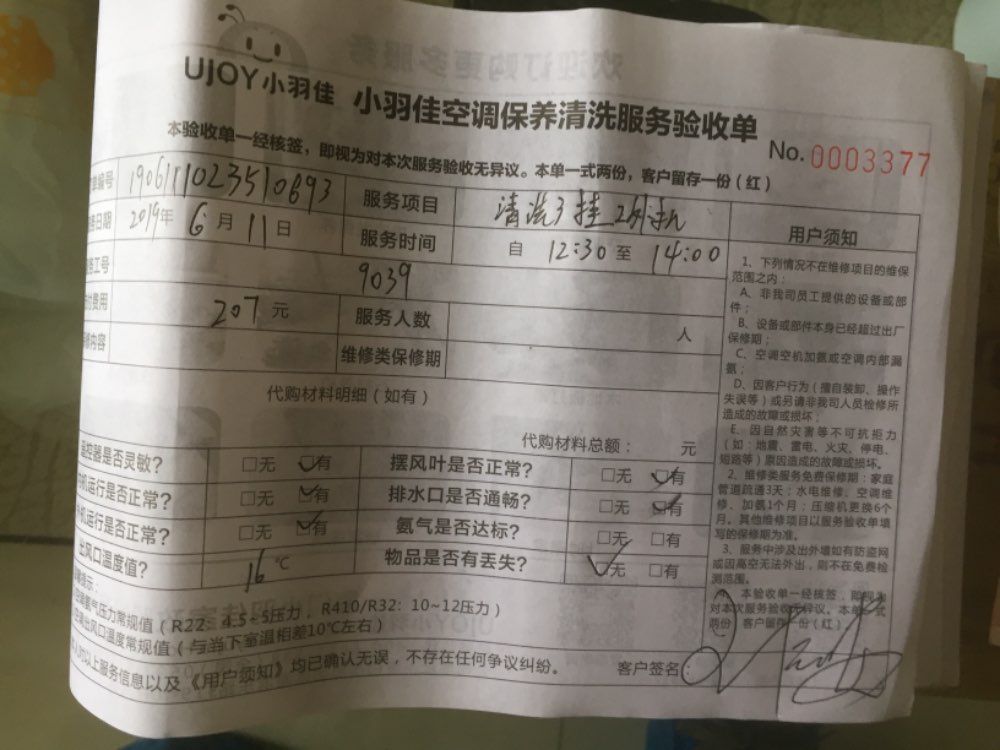 UJOY小羽佳
小羽佳空调保养清洗服务验收单
No. 0003377
本验收单一经核签，即视为对本次服务验收无异议。本单一式两份，客户留存一份（红）
单编号 1906111023510693 服务项目 清洗3挂
务日期 2019年6月11日 服务时间 自 12:30 至 14:00
务工号 9039
付费用 207 元 服务人数 人
修内容 维修类保修期
代购材料明细（如有）
代购材料总额： 元
温控器是否灵敏? □无 ☑有 摆风叶是否正常? □无 ☑有
机运行是否正常? □无 ☑有 排水口是否通畅? □无 ☑有
机运行是否正常? □无 ☑有 氨气是否达标? □无 □有
出风口温度值? 16 ℃ 物品是否有丢失? ☑无 □有
提示：
气压力常规值（R22：4.5~5压力，R410/R32：10~12压力）
出风口温度常规值（与当下室温相差10℃左右）
对以上服务信息以及《用户须知》均已确认无误，不存在任何争议纠纷。 客户签名：
用户须知
1、下列情况不在维修项目的维保
范围之内：
A、非我司员工提供的设备或部
件；
B、设备或部件本身已经超过出厂
保修期；
C、空调空机加氨或空调内部漏
氨；
D、因客户行为（擅自装卸、操作
失误等）或另请非我司人员检修所
造成的故障或损坏；
E、因自然灾害等不可抗拒力
（如：地震、雷电、火灾、停电、
短路等）原因造成的故障或损坏。
2、维修类服务免费保修期：家庭
管道疏通3天；水电维修、空调维
修、加氨1个月；压缩机更换6个
月。其他维修项目以服务验收单填
写的保修期为准。
3、服务中涉及出外墙如有防盗网
或因高空无法外出，则不在免费检
测范围。
本验收单一经核签，即视为
对本次服务验收无异议。本单一式
两份，客户留存一份（红）